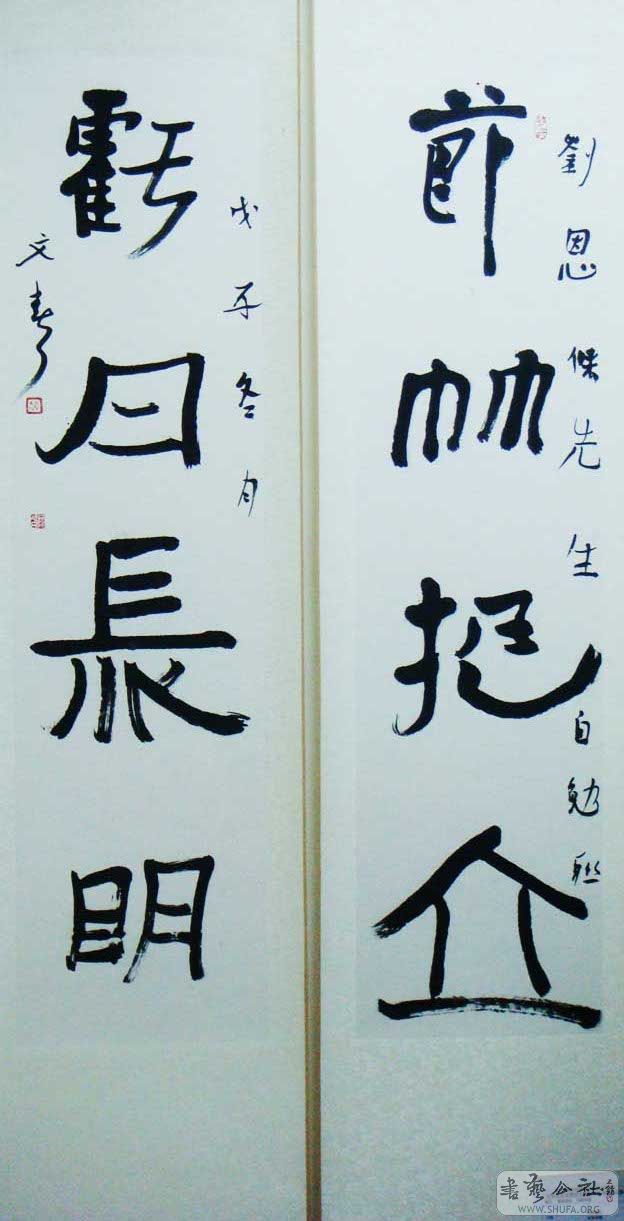 節竹挺立
劉恩傑先生自勉聯
虧月長明
戊子冬月
文
書藝公社
WWW.SHUFA.ORG